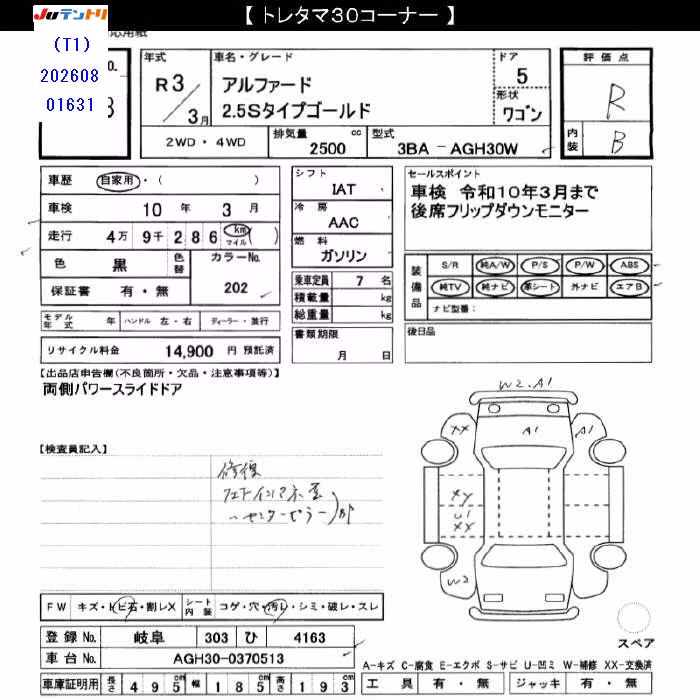 【 トレタマ30コーナー 】
JUテントリ
(T1)
202608
01631
年式
R3/3月
車名・グレード
アルファード
2.5Sタイプゴールド
ドア
5
形状
ワゴン
評価点
R
内装
B
2WD・4WD
排気量
2500 cc
型式
3BA-AGH30W
車歴 自家用・( )
車検 10年 3月
走行 4万 9千 2 8 6 km マイル ( )
色 黒 色替 カラーNo.
保証書 有・無 202
シフト
IAT
冷房
AAC
燃料
ガソリン
乗車定員 7 名
積載量 kg
総重量 kg
セールスポイント
車検 令和10年3月まで
後席フリップダウンモニター
装備品
S/R 純A/W P/S P/W ABS
純TV 純ナビ 革シート 外ナビ エアB
ナビ型番:
モデル年式 年 ハンドル 左・右 ディーラー・並行
リサイクル料金 14,900 円 預託済
書類期限
月 日
後日品
【出品店申告欄(不良箇所・欠品・注意事項等)】
両側パワースライドドア
【検査員記入】
修復
W2.A1
XX
A1
A1
XY
U1
XX
W2
FW キズ・トビ石・割レX シート内装 コゲ・穴・汚レ・シミ・破レ・スレ
登録No. 岐阜 303 ひ 4163
車台No. AGH30-0370513
車庫証明用 長さ 495cm 幅 185cm 高さ 193cm
スペア
A-キズ C-腐食 E-エクボ S-サビ U-凹ミ W-補修 XX-交換済
工具 有・無 ジャッキ 有・無